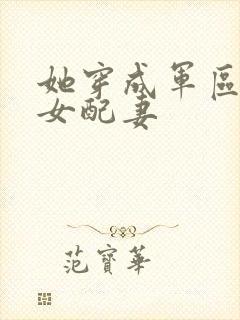 她穿成軍區
女配妻
范寶華